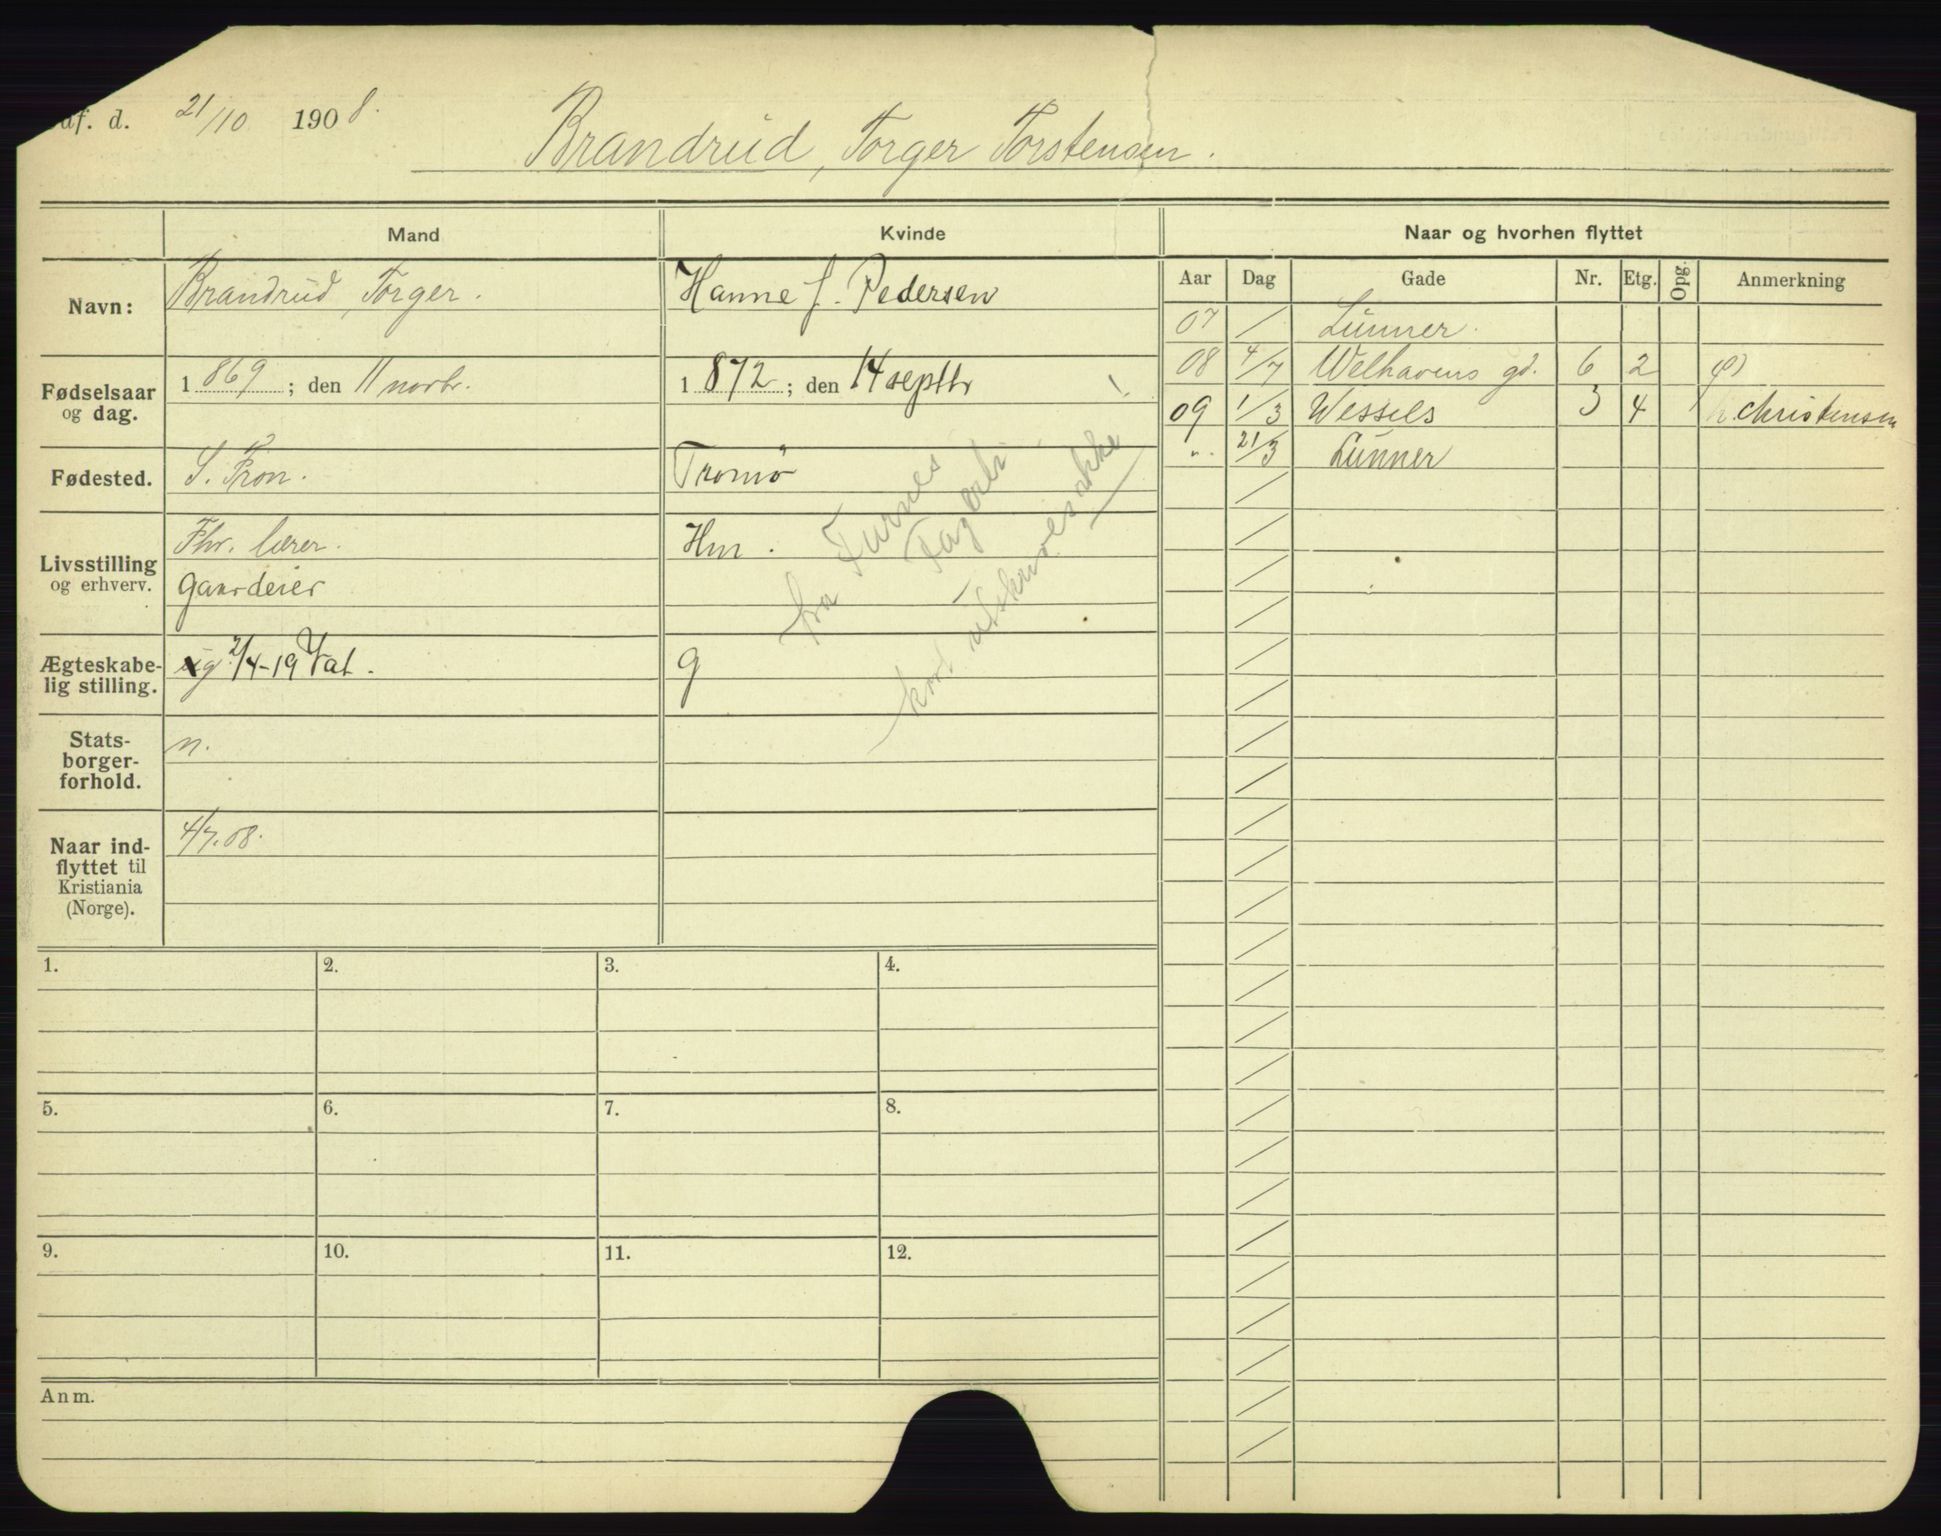 Udf. d. 21/10 1908.
Brandrud, Torger Torstensen.
Mand
Kvinde
Naar og hvorhen flyttet
Navn:
Brandrud, Torger.
Hanne f. Pedersen
Aar Dag Gade Nr. Etg. Opg. Anmerkning
07 / Lunner.
08 4/7 Welhavens gd. 6 2
09 1/3 Wessels 3 4 Christensen
". 21/3 Lunner
Fødselsaar
og dag.
1869; den 11 novbr.
1872; den 14 septbr
Fødested.
S. Fron.
Tromø
Livsstilling
og erhverv.
Fhv. lærer.
Gaardeier
Hm.
fra Furnes
Fagerli
kort utskrives ikke!
Ægteskabe-
lig stilling.
ug 2/4-19 Vat.
g
Stats-
borger-
forhold.
n.
Naar ind-
flyttet til
Kristiania
(Norge).
4/7.08.
1. 2. 3. 4.
5. 6. 7. 8.
9. 10. 11. 12.
Anm.